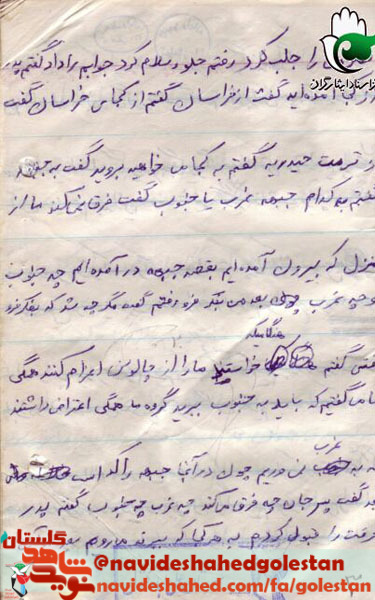 را جلب کرد رفتم جلو و سلام کرد جوابم را داد گفتم پدر
از کجا آمده اید گفت از خراسان گفتم از کجای خراسان گفت
تربت حیدریه گفتم به کجا می خواهید بروید گفت به جبهه
گفتم به کدام جبهه غرب یا جنوب گفت فرق نمی کند ما از
منزل که بیرون آمده ایم بقصد جبهه در آمده ایم چه جنوب
و چه غرب بعد من به فکر فرو رفتم گفت مگر چه شد که بفکر فرو
هنگامیکه
رفتی گفتم خواستند ما را از چالوس اعزام کنند همگی
ما می گفتیم که باید به جنوب ببرید گروه ما همگی اعتراض داشتند
غرب
که به نمی رویم چون در آنجا جبهه راکد است
گفت پسر جان چه فرق می کند چه غرب چه جنوب گفتم پدر
حرفت را قبول کردم به هر کجا که ببرند ما می رویم
نوید شاهد گلستان
@navideshahedgolestan
navideshahed.com/fa/golestan